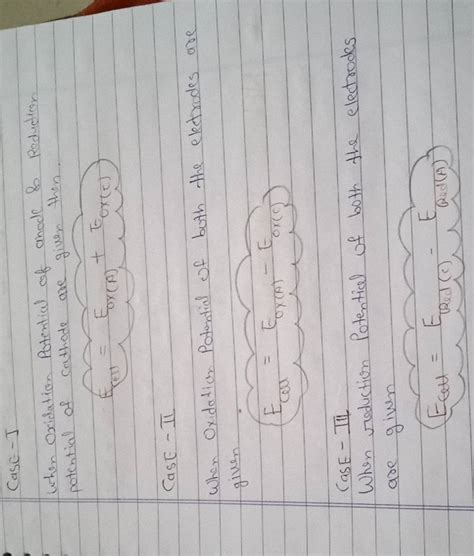 CasE - I
When Oxidation Potential of anode & Reduction
potential of cathode are given then.
Ecell = Eox(A) + Eox(c)
CasE - II
When Oxidation Potential of both the electrodes are
given
Ecell = Eox(A) - Eox(c)
CasE - III
When reduction Potential of both the electrodes
are given
Ecell = E(Red(c) - ERed(A)